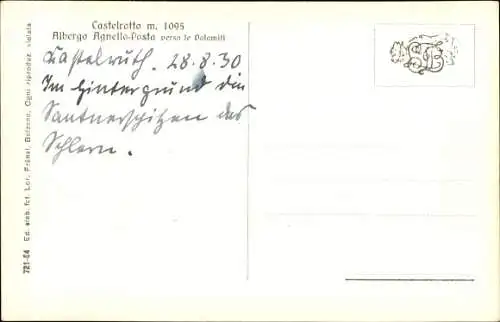 Castelrotto m. 1095
Albergo Agnello-Posta verso le Dolomiti
Kastelruth. 28.8.30
Im Hintergrund die
Santnerspitzen des
Schlern.
721-84 Ed. stab. fot. Lor. Fränzl, Bolzano. Ogni riproduz. vietata